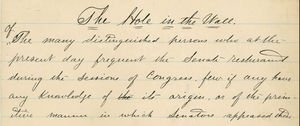 The Hole in the Wall.
Of the many distinguished persons who at the
present day frequent the Senate restaurant
during the sessions of Congress, few if any have
any knowledge of the its origin, or of the primi-
tive manner in which Senators appeased their